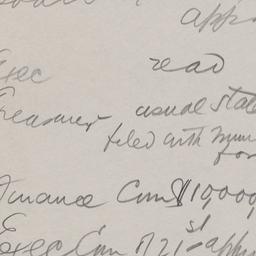 app
Exec read
Treasurer usual State
filed with
for
Finance Com $10,000,
st
Exec Com 21 - appr